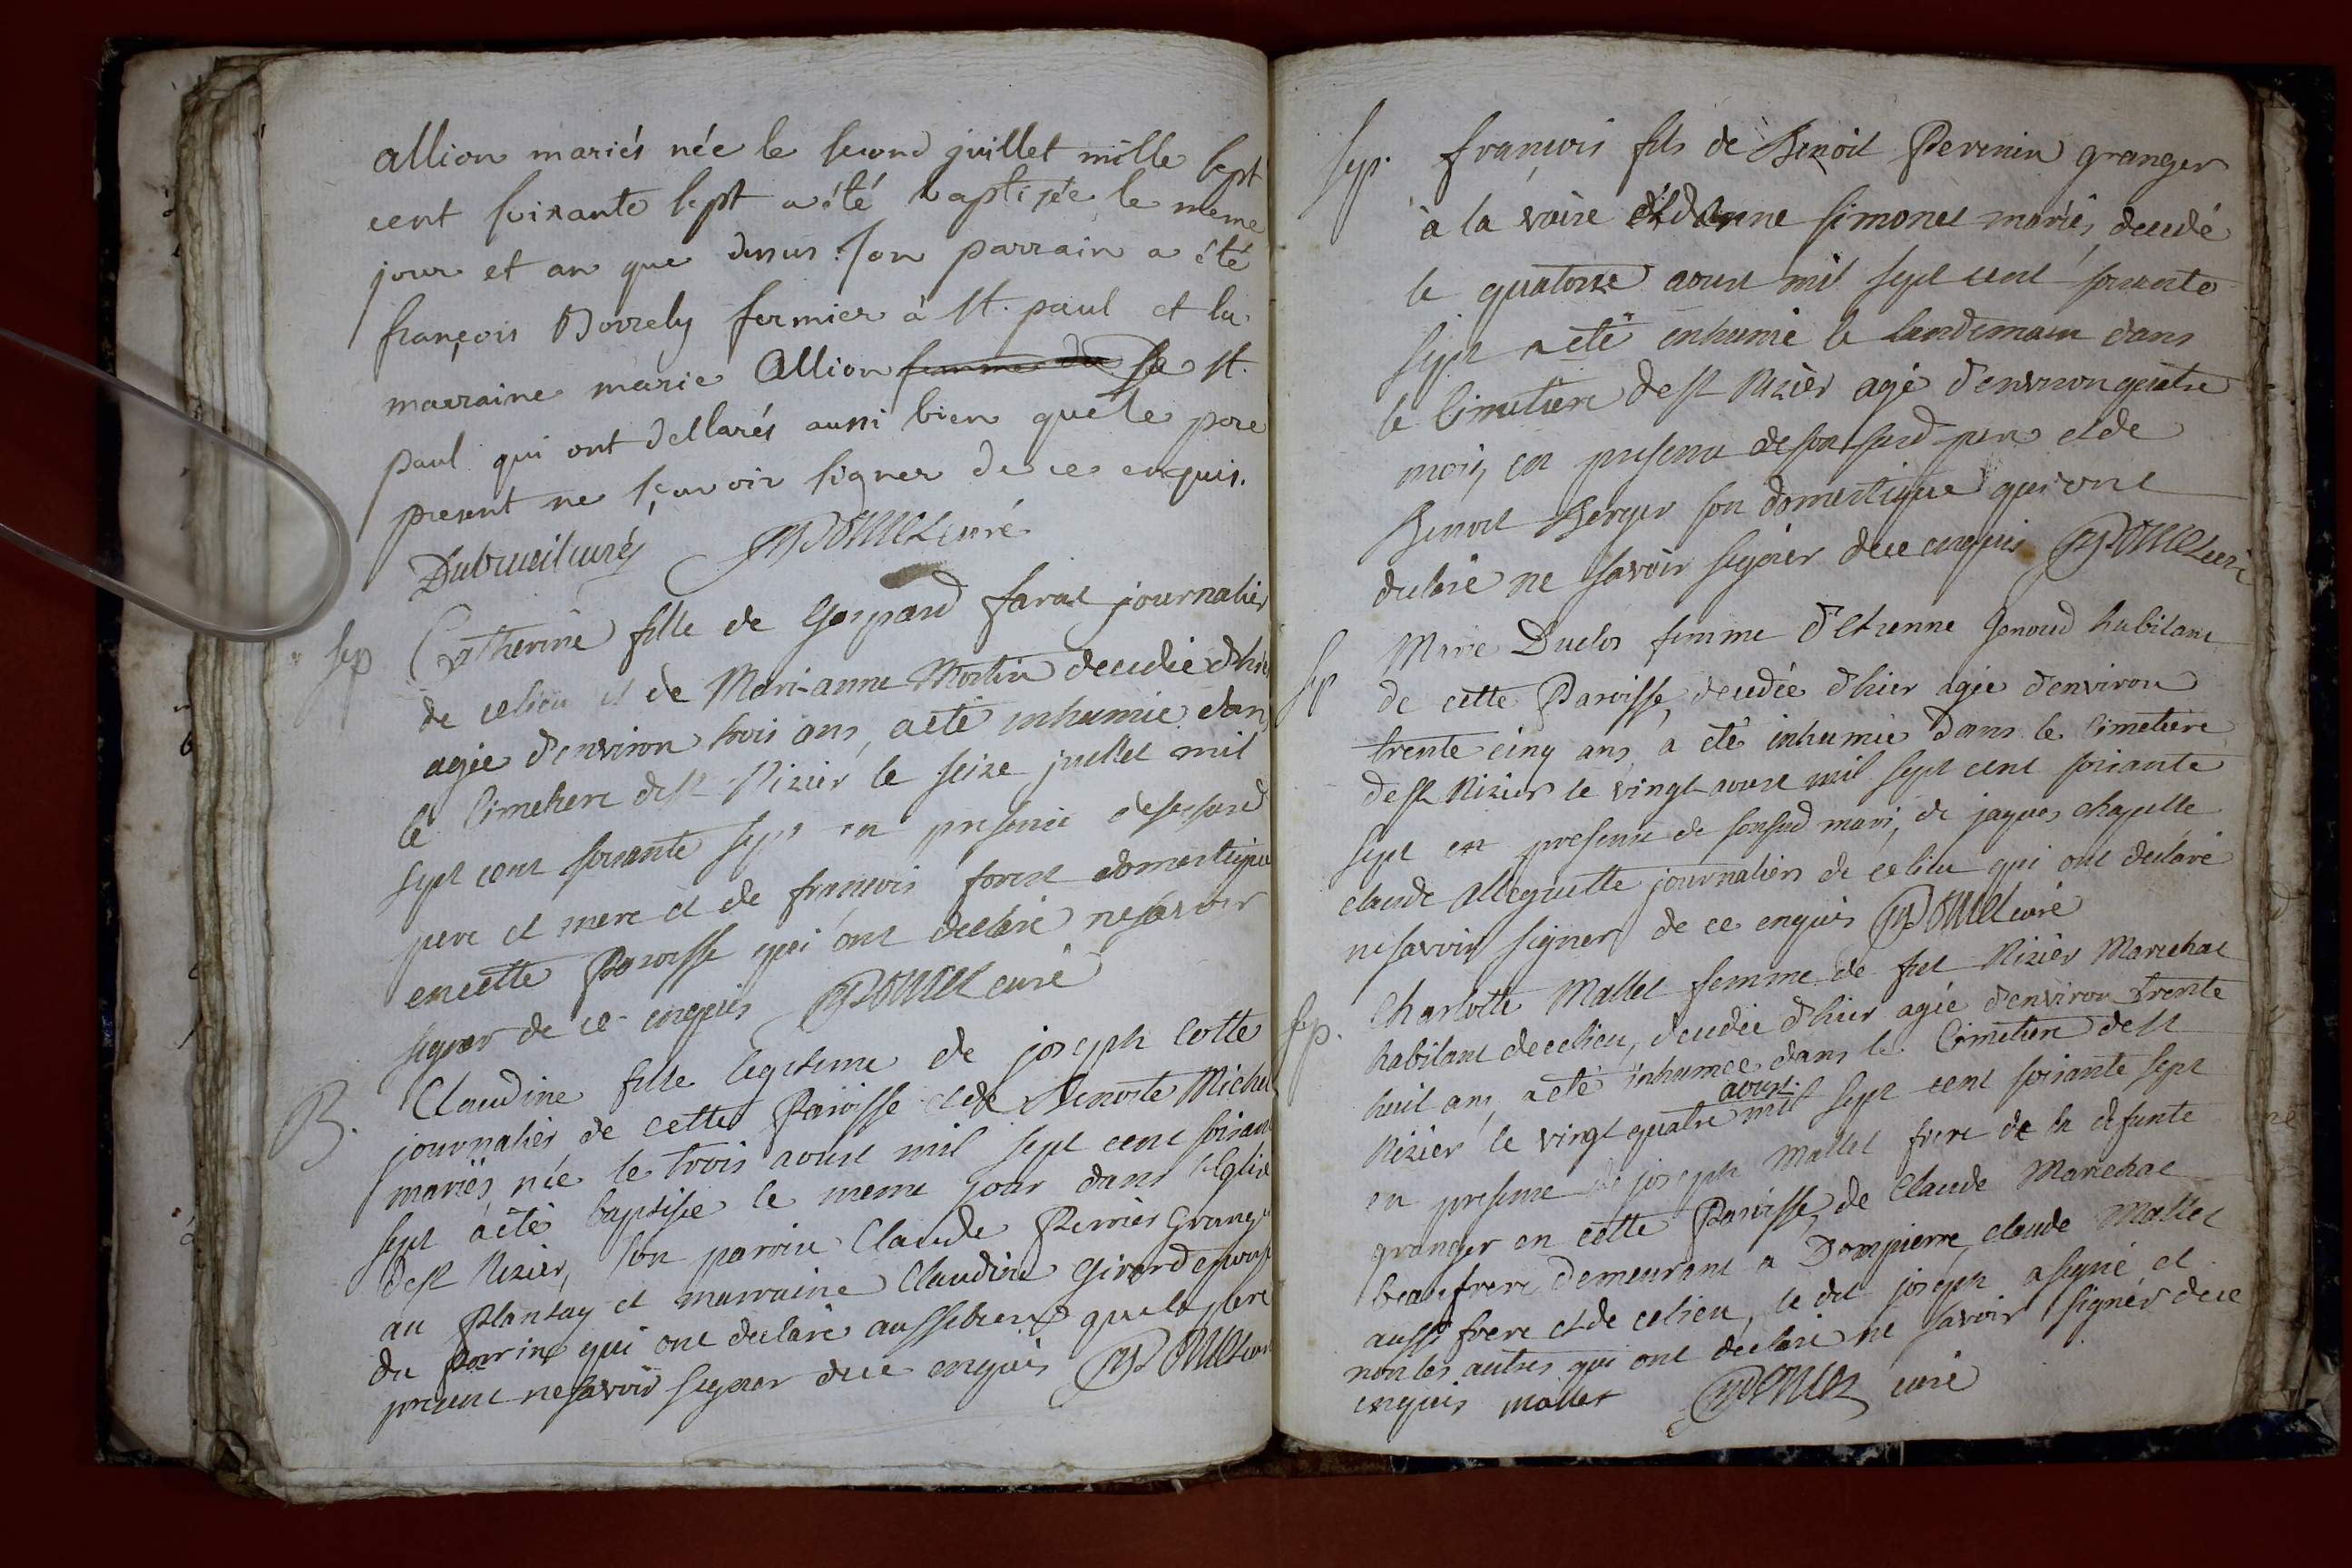 allion mariés née le second juillet mille sept
cent soixante sept a été baptisée le meme
jour et an que dessus. son parrain a été
françois Borrely fermier à st. paul et la
marraine marie Allion femme du de st.
paul qui ont dellarés aussi bien que le pere
present ne sçavoir signer de ce enquis.
Dubrueil curé curé
sep Catherine fille de Gaspard farat journalier
de ce lieu et de Mari-anne Martin decedée d'hier
agée d'environ trois ans, a eté inhumée dans
le Cimetiere de st Nizier le seize juillet mil
sept cent soixante sept en presence de sesused
pere et mere et de francois forest domestique
en cette Paroisse qui ont declaré ne savoir
signer de ce enquis curé
B. Claudine fille legitime de joseph Cotte
journalier de cette Paroisse et de Benoite Michel
mariés, née le trois aoust mil sept cent soixante
sept a eté baptisée le meme jour dans l'Eglise
de st Nizier, son parrain Claude Perrier Granger
au Plantay et marraine Claudine Girard epouse
du parrin qui ont declaré aussi bien que le pere
present ne savoir signer de ce enquis curé
sep. françois fils de Benoit Perenin granger
à la voire et d'anne simonet mariés, decedé
le quatorze aoust mil sept cent soixante
sept a eté inhumé le landemain dans
le Cimetiere de st Nizier agé d'environ quatre
mois, en presence de son susd pere et de
Benoit Berger son domestique qui ont
declaré ne savoir signer de ce enquis curé
sep Marie Duclos femme d'Etienne Genoud habitant
de cette Paroisse, decedée d'hier agée d'environ
trente cinq ans a eté inhumée dans le Cimetiere
de st Nizier le vingt aoust mil sept cent soixante
sept en presence de son susd mari, de jaques chapelle
claude Alleguette journaliers de ce lieu qui ont declaré
ne savoir signer de ce enquis curé
sep. Charlotte Mallet femme de feu Nizier Marechal
habitant de ce lieu, decedée d'hier agée d'environ trente
huit ans, a eté inhumée dans le Cimetiere de st
Nizier le vingt quatre aoust mil sept cent soixante sept
en presence de joseph Mallet frere de la defunte
granger en cette Paroisse, de Claude Marechal
beaufrere demeurant a Dompierre, claude Mallet
aussi frere et de ce lieu, le dit joseph a signé et
non les autres qui ont declaré ne savoir signer de ce
enquis mallet curé